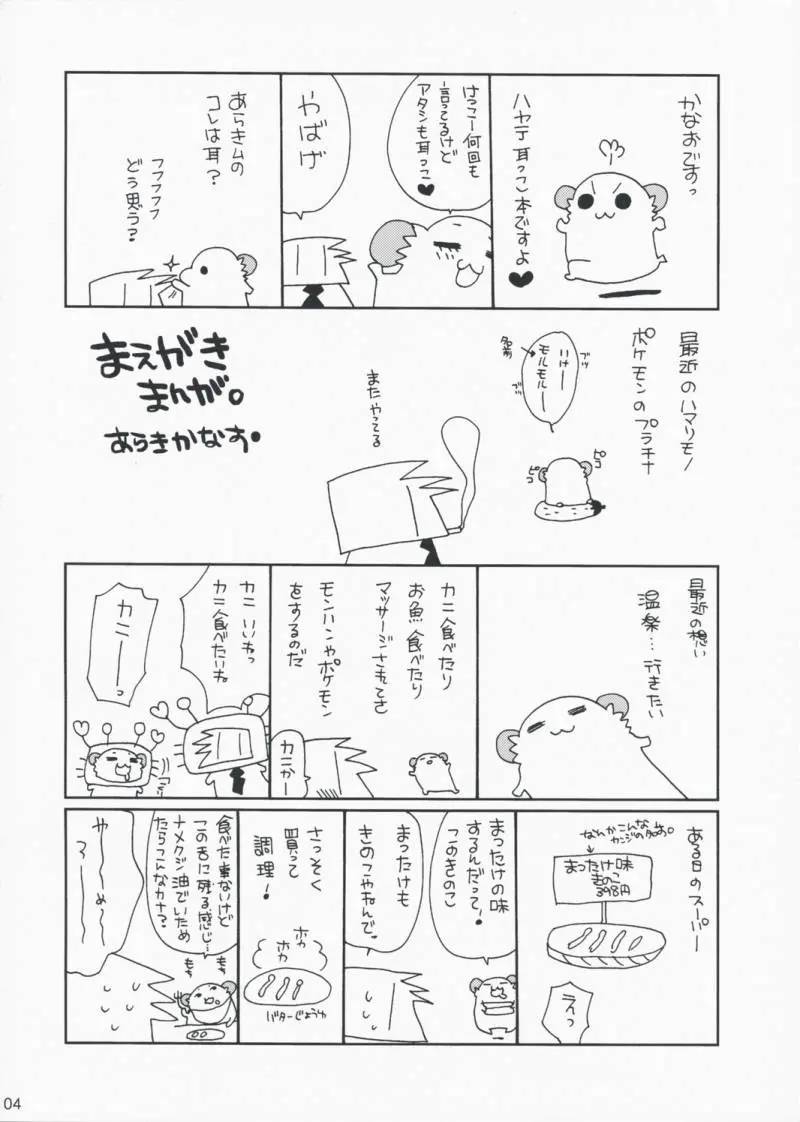 かなおですっ
ハヤテ耳っこ本ですよ♥
けっこー何回も
言ってるけど
アタシも耳っこ♥
やばげ
あらきムの
コレは耳?
フフフフフ
どう思う?
最近のハマリモノ
ポケモンのプラチナ
いけー
モルモルー
名前
ブツ
ブツ
ピコ
ピコ
またやってる
まえがき
まんが。
あらきかなお。
最近の想い
温泉…行きたい
カニ食べたり
お魚食べたり
マッサージされてさ
モンハンやポケモン
をするのだ
カニかー
カニいいねっ
カニ食べたいね
カニーーっ
ある日のスーパー
なんかこんな
カンジの名前。
まったけ味
きのこ
398円
えっ
まったけの味
するんだって!
このきのこ
まったけも
きのこやねんで。
さっそく
買って
調理!
ホカ
ホカ
バターじょうゆ
食べた事ないけど
この舌に残る感じ…
ナメクジ油でいため
たらこんなカナ?
もき
もき
やーーめーー
てーーー
04